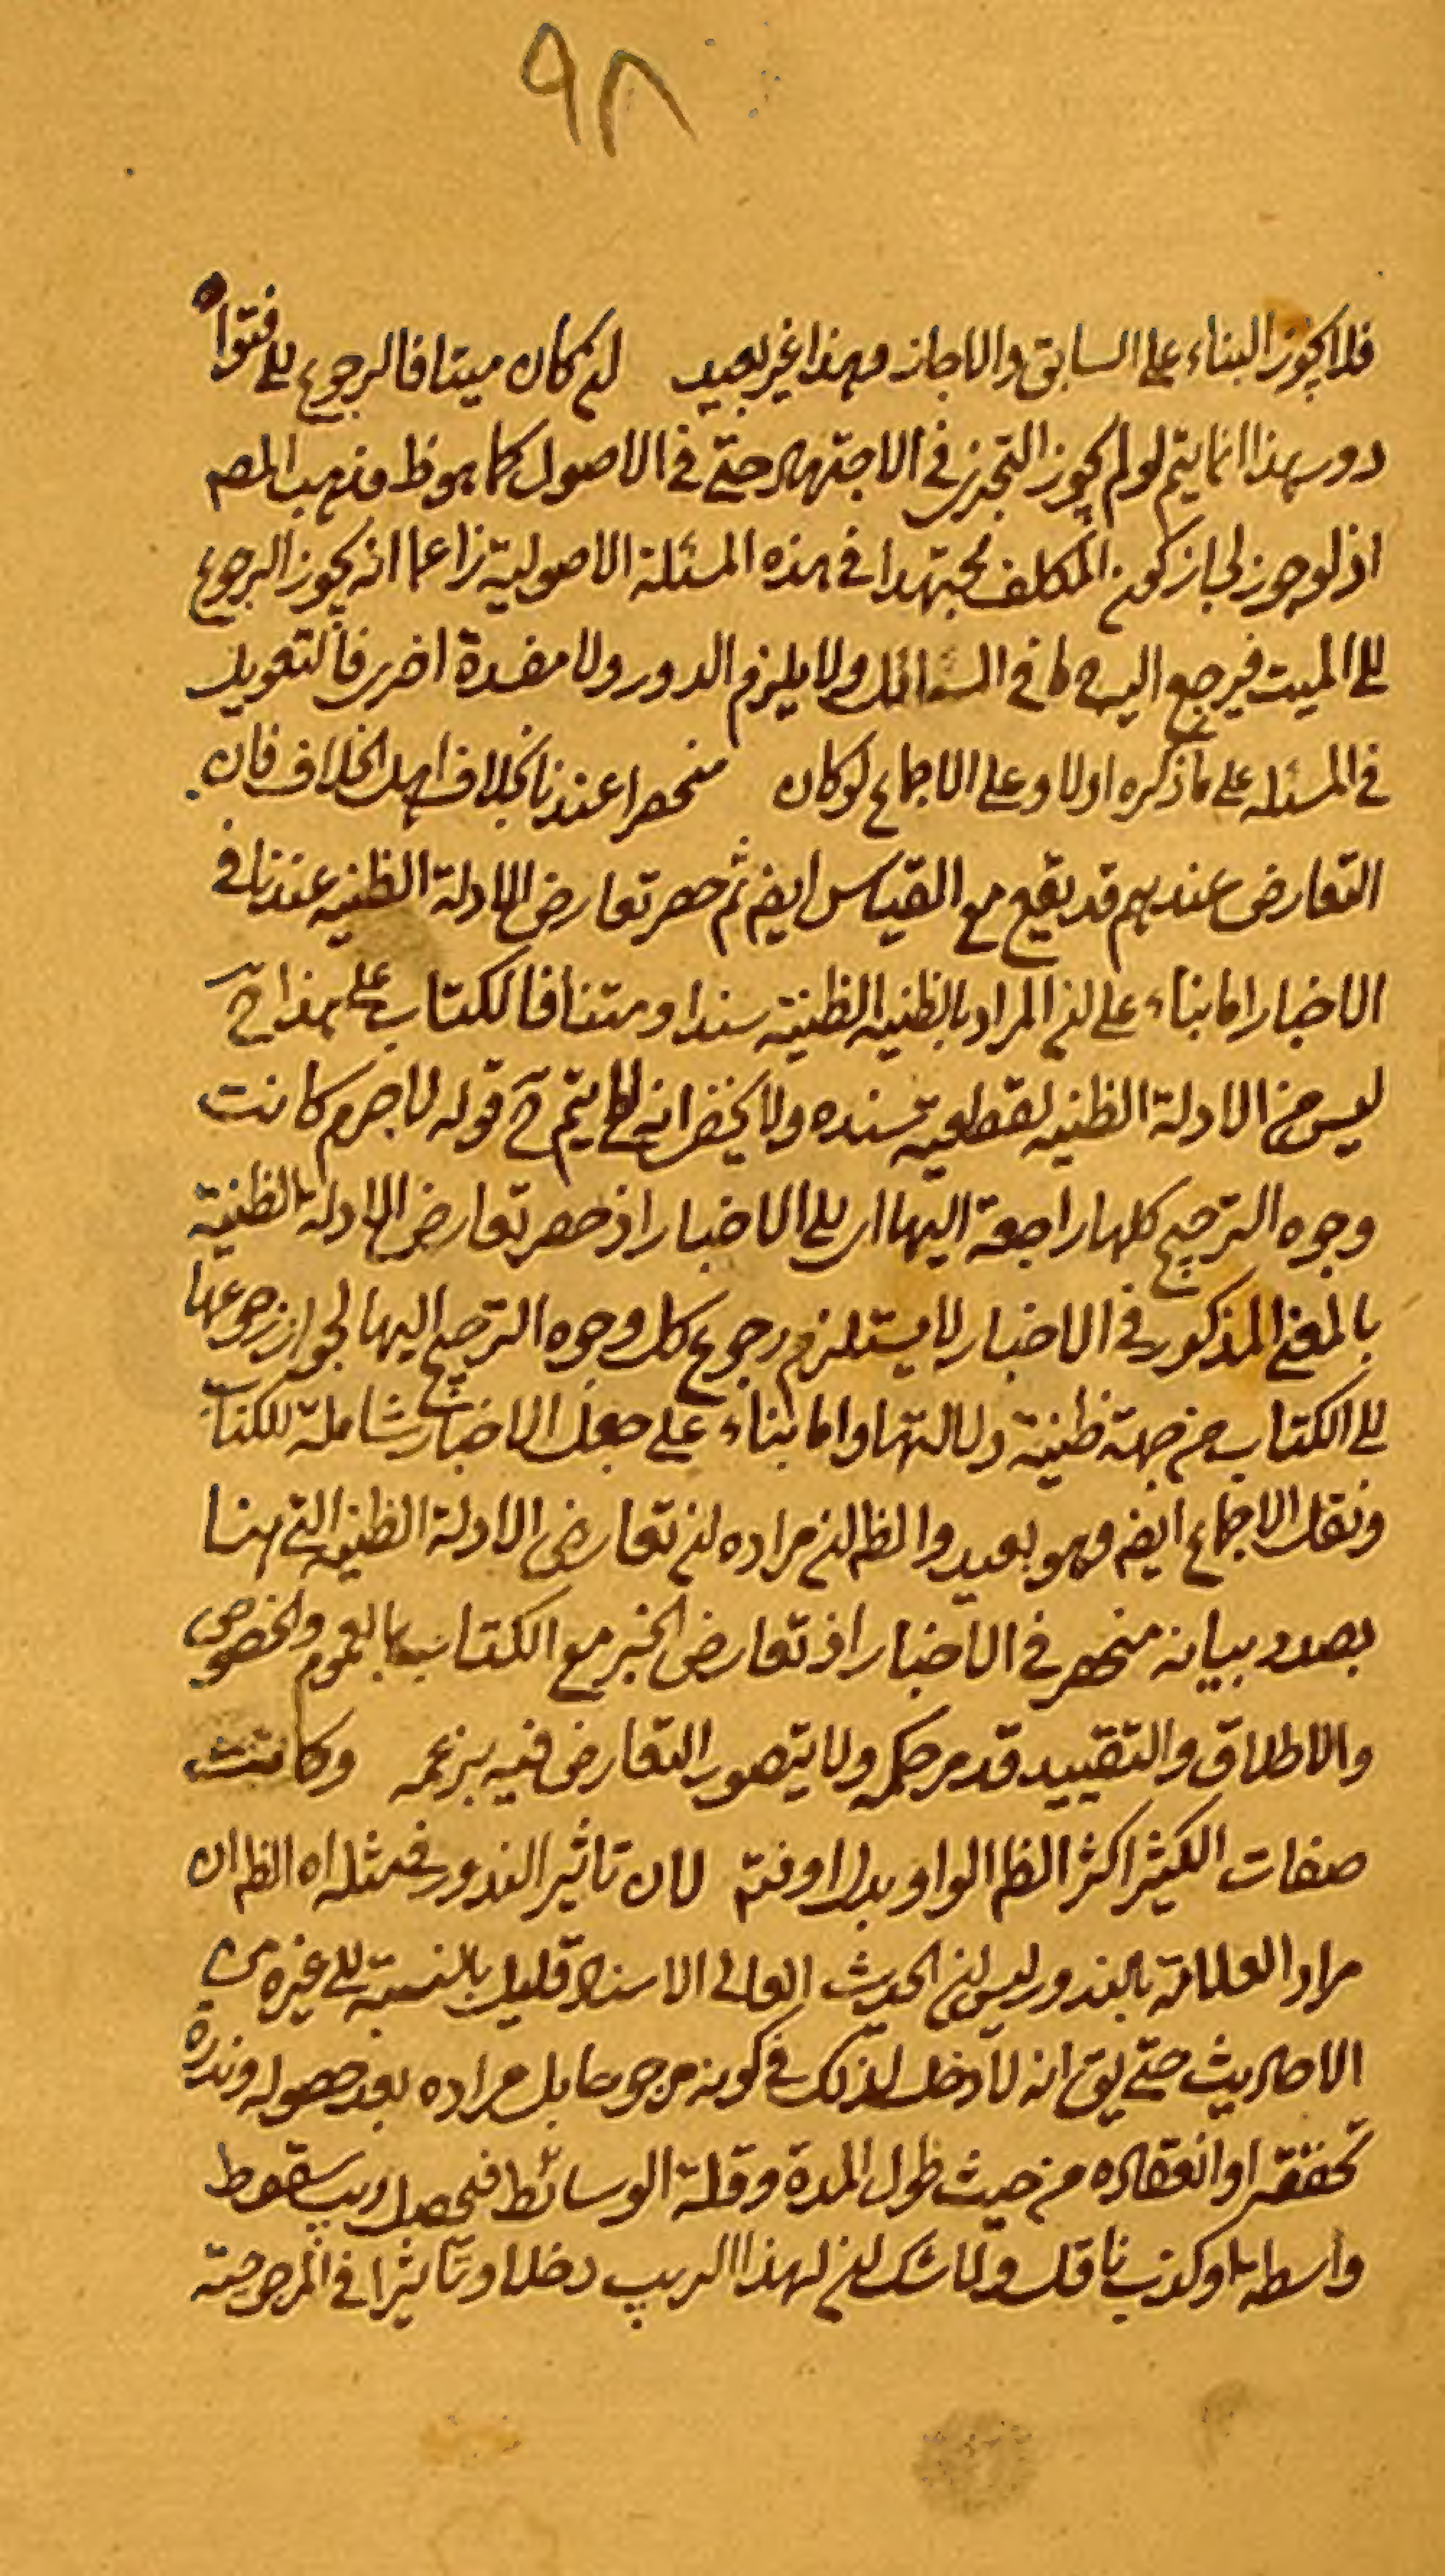 ٩٨
فلا يجوز البناء على السابق والاجازه وهذا غير بعيد لان كان ميتا فالرجوع الى فتواه
دور هذا انما يتم لو لم يجوز التجزي في الاجتهاد حتى في الاصول كما هو ظ مذهب المصم
اذ لو جوز لجاز كون المكلف مجتهدا في هذه المسئلة الاصولية زاعما انه يجوز الرجوع
الى الميت فيرجع اليه كما في المسائل ولا يلزم الدور ولا مفسدة اخرى فالتعويل
في المسئله على ما ذكره اولا وعلى الاجماع لو كان منحصرا عندنا بخلاف اهل الخلاف فان
التعارض عندهم قد يقع مع القياس ايضم ثم حصر تعارض الادلة الظنيه عندنا في
الاخبار اما بناء على ان المراد بالظنيه الظنية سندا ومتنا فالكتاب على هذا ح
ليس من الادلة الظنيه لقطعية سنده ولا يخفى انه لا يتم ح قوله لا جرم كانت
وجوه الترجيح كلها راجعة اليها اى الى الاخبار اذ حصر تعارض الادلة الظنية
بالمعنى المذكور في الاخبار لا يستلزم رجوع كل وجوه الترجيح اليها لجواز رجوعها
الى الكتاب من جهة ظنية دلالتها واما بناء على جعل الاخبار شاملة للكتاب
ونقل الاجماع ايضم وهو بعيد والظ ان مراده ان تعارض الادلة الظنيه التي هنا
بصدد بيانه منحصر في الاخبار اذ تعارض الخبر مع الكتاب بالعموم والخصوص
والاطلاق والتقييد قد مر حكمه ولا يتصور التعارض فيه بزعمه وكانت
صفات الكثير اكثر الظ الواو بدل او فتم لان تاثير الندور في مثله اه الظ ان
مراد العلامة بالندور ليس ان الحديث العالى الاسناد قليل بالنسبة الى غيره من
الاحاديث حتى يق انه لا دخل لذلك في كونه مرجوحا بل مراده بعد حصوله وندرة
تحققه او انعقاده من حيث طول المدة وقلة الوسائط فيحصل ريب سقوط
واسطة او كذب ناقل ولا شك ان لهذا الريب دخلا وتاثيرا في المرجوحية